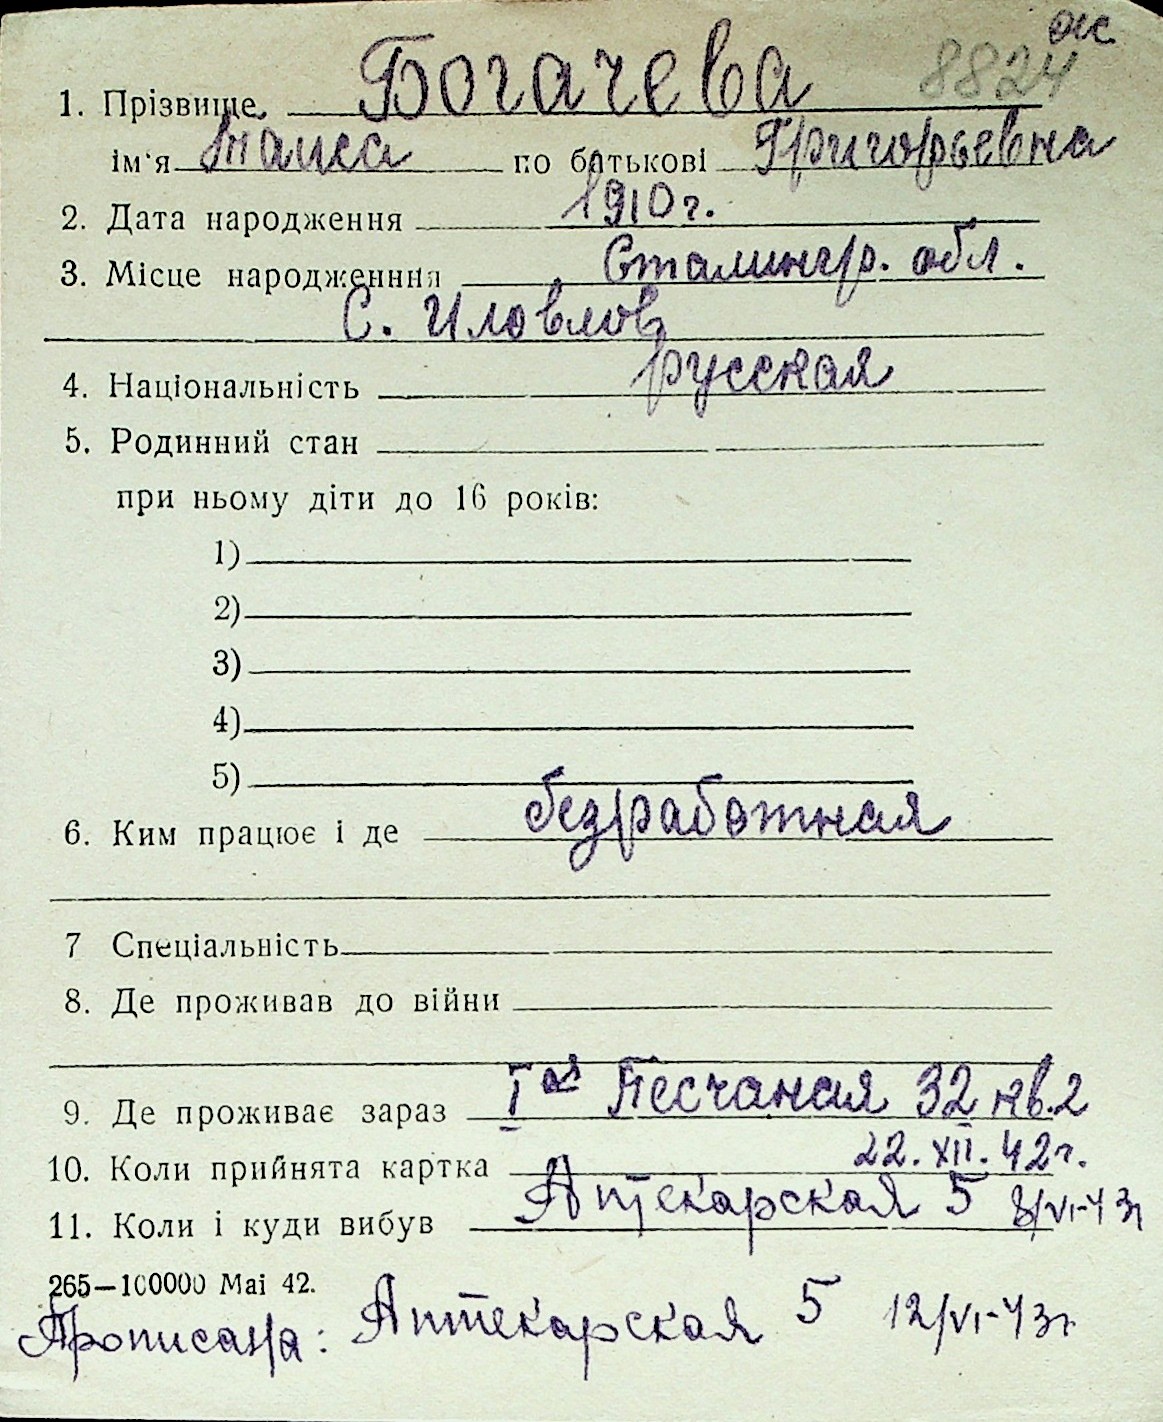 ж
8824
1. Прізвище Богачева
ім'я Таиса по батькові Григорьевна
2. Дата народження 1910 г.
3. Місце народженння Сталингр. обл.
С. Иловлов
4. Національність русская
5. Родинний стан
при ньому діти до 16 років:
1)
2)
3)
4)
5)
6. Ким працює і де безработная
7 Спеціальність
8. Де проживав до війни
9. Де проживає зараз I ая Песчаная 32 кв. 2
10. Коли прийнята картка 22. XII. 42 г.
11. Коли і куди вибув Аптекарская 5 8/VI-43г
265—100000 Mai 42.
Прописана: Аптекарская 5 12/VI-43г